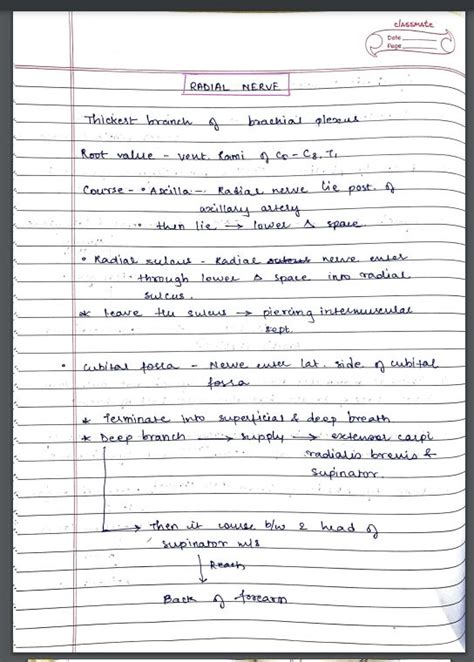 classmate
Date
Page
RADIAL NERVE
Thickest branch of brachial plexus
Root value - vent. Rami of C5 - C8, T1
Course - • Axilla - Radial nerve lie post. of
axillary artery
• then lie → lower Δ space
• Radial sulcus - Radial nerve enter
through lower Δ space into radial
sulcus.
* leave the sulcus → piercing intermuscular
sept.
• Cubital fossa - Nerve enter lat. side of cubital
fossa
* Terminate into superficial & deep breath
* Deep branch → supply → extensor carpi
radialis brevis &
supinator.
→ Then it course b/w 2 head of
supinator m/s
↓ Reach
Back of forearm